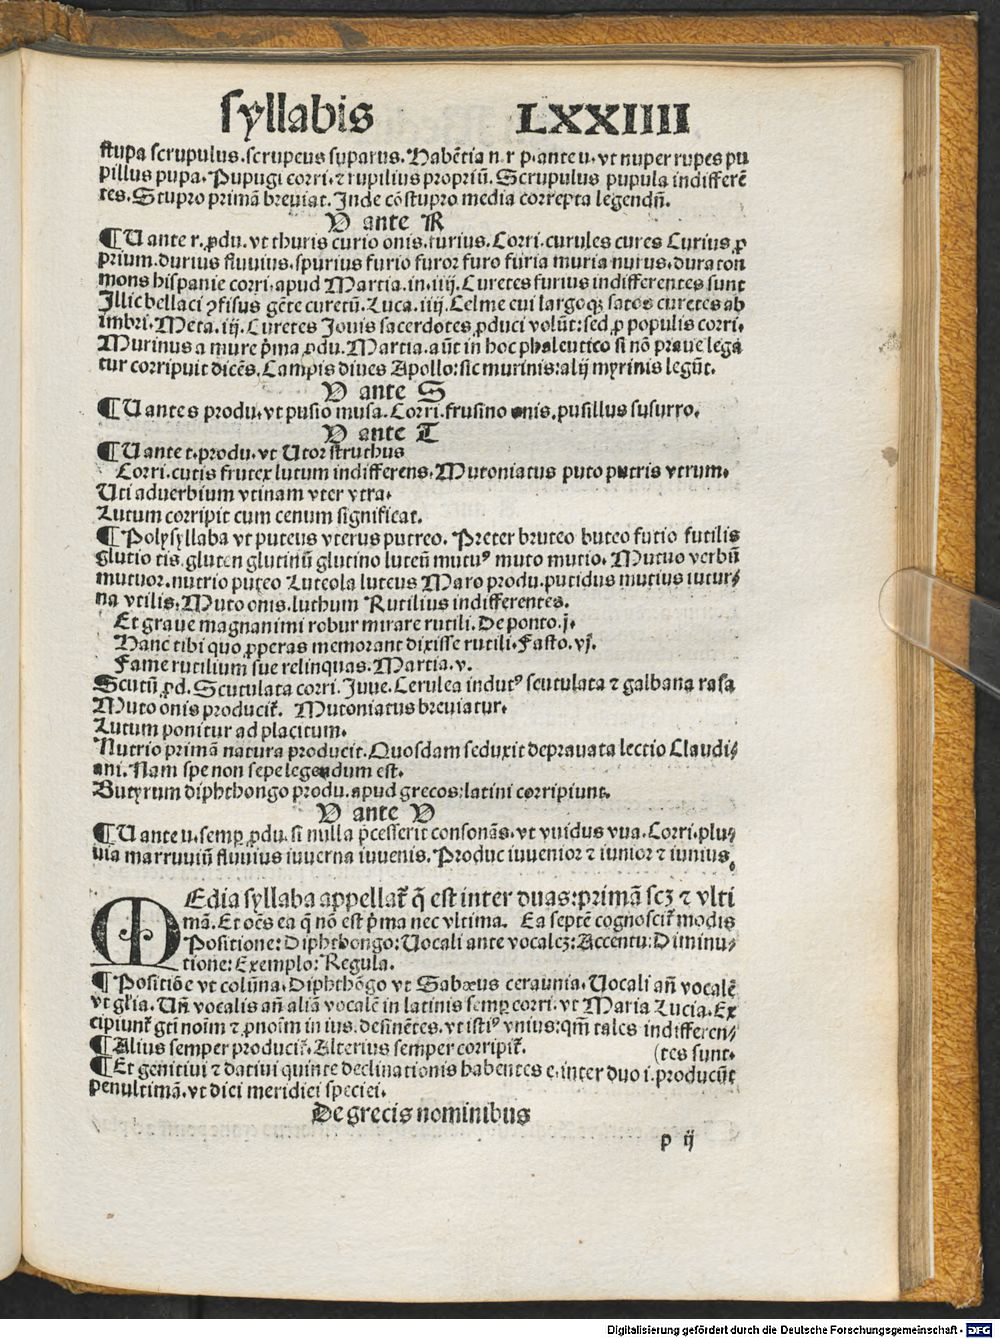 syllabis LXXIIII
stupa scrupulus. scrupeus suparus. Habẽtia n. r p. ante u. vt nuper rupes pu
pillus pupa. Pupugi corri. ⁊ rupilius propriũ. Scrupulus pupula indifferẽ
tes. Stupro primã breuiat. Inde cõstupro media correpta legendũ.
V ante R
¶ U ante r. ꝓdu. vt thuris curio onis. turius. Corri. curules cures Curius ꝓ
prium. durius fluuius. spurius furio furor furo furia muria nurus. dura ton
mons hispanie corri. apud Martia. in. iiij. Curetes furius indifferentes sunt
Illic bellaci ꝯfisus gẽte curetũ. Luca. iiij. Celme cui largoqꝫ satos curetes ab
imbri. Meta. iij. Curetes Jouis sacerdotes ꝓduci volũt: sed ꝓ populis corri.
Murinus a mure p̃ma ꝓdu. Martia. aũt in hoc phaleutico si nõ praue lega
tur corripuit dicẽs. Campis diues Apollo: sic murinis: alij myrinis legũt.
V ante S
¶ U ante s produ. vt pusio musa. Corri. frusino onis. pusillus susurro.
V ante T
¶ U ante t. produ. vt Utor struthus
Corri. cutis frutex lutum indifferens. Mutoniatus puto putris vtrum.
Uti aduerbium vtinam vter vtra.
Lutum corripit cum cenum significat.
¶ Polysyllaba vt puteus vterus putreo. Preter bruteo buteo futio futilis
glutio tis. gluten glutinũ glutino luteũ mutuꝰ muto mutio. Mutuo verbũ
mutuor. nutrio puteo Luteola luteus Maro produ. putidus mutius iutur⸗
na vtilis. Muto onis. luthum Rutilius indifferentes.
Et graue magnanimi robur mirare rutili. De ponto. j.
Hanc tibi quo ꝓperas memorant dixisse rutili. Fasto. vj.
Fame rutilium sue relinquas. Martia. v.
Scutũ ꝓd. Scutulata corri. Juue. Cerulea indutꝰ scutulata ⁊ galbana rasa
Muto onis producit᷑. Mutoniatus breuiatur.
Lutum ponitur ad placitum.
Nutrio primã natura producit. Quosdam seduxit deprauata lectio Claudi⸗
ani. Nam spe non sepe legendum est.
Butyrum diphthongo produ. apud grecos: latini corripiunt.
V ante V
¶ U ante u. semꝑ ꝓdu. si nulla p̃cesserit consonãs. vt vuidus vua. Corri. plu⸗
uia marruuiũ fluuius iuuerna iuuenis. Produc iuuenior ⁊ iunior ⁊ iunius.
MEdia syllaba appellat᷑ q̃ est inter duas: primã scꝫ ⁊ vlti
mã. Et oẽs ea q̃ nõ est p̃ma nec vltima. Ea septẽ cognoscit᷑ modis
Positione: Diphthongo: Uocali ante vocalẽ: Accentu: Diminu⸗
tione: Exemplo: Regula.
¶ Positiõe vt colũna. Diphthõgo vt Sabæus ceraunia. Uocali añ vocalẽ
vt gl̃ia. Uñ vocalis añ aliã vocalẽ in latinis semꝑ corri. vt Maria Lucia. Ex
cipiunt᷑ gt̃i noĩm ⁊ ꝓnoĩm in ius. desinẽtes. vt istiꝰ vnius: qm̃ tales indifferen⸗
¶ Alius semper producit᷑. Alterius semper corripit᷑. (tes sunt.
¶ Et genitiui ⁊ datiui quinte declinationis habentes e. inter duo i. producũt
penultimã. vt diei meridiei speciei.
De grecis nominibus
p ij
Digitalisierung gefördert durch die Deutsche Forschungsgemeinschaft - DFG